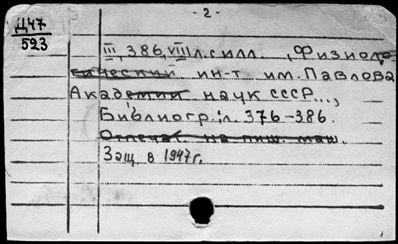 - 2 -
Д47
523
III, 386, VIII л. с илл., Физиоло-
гический ин-т им. Павлова
Академии наук СССР...,
Библиогр.: л. 376-386.
Отпечат. на пиш. маш.
Защ. в 1947г.